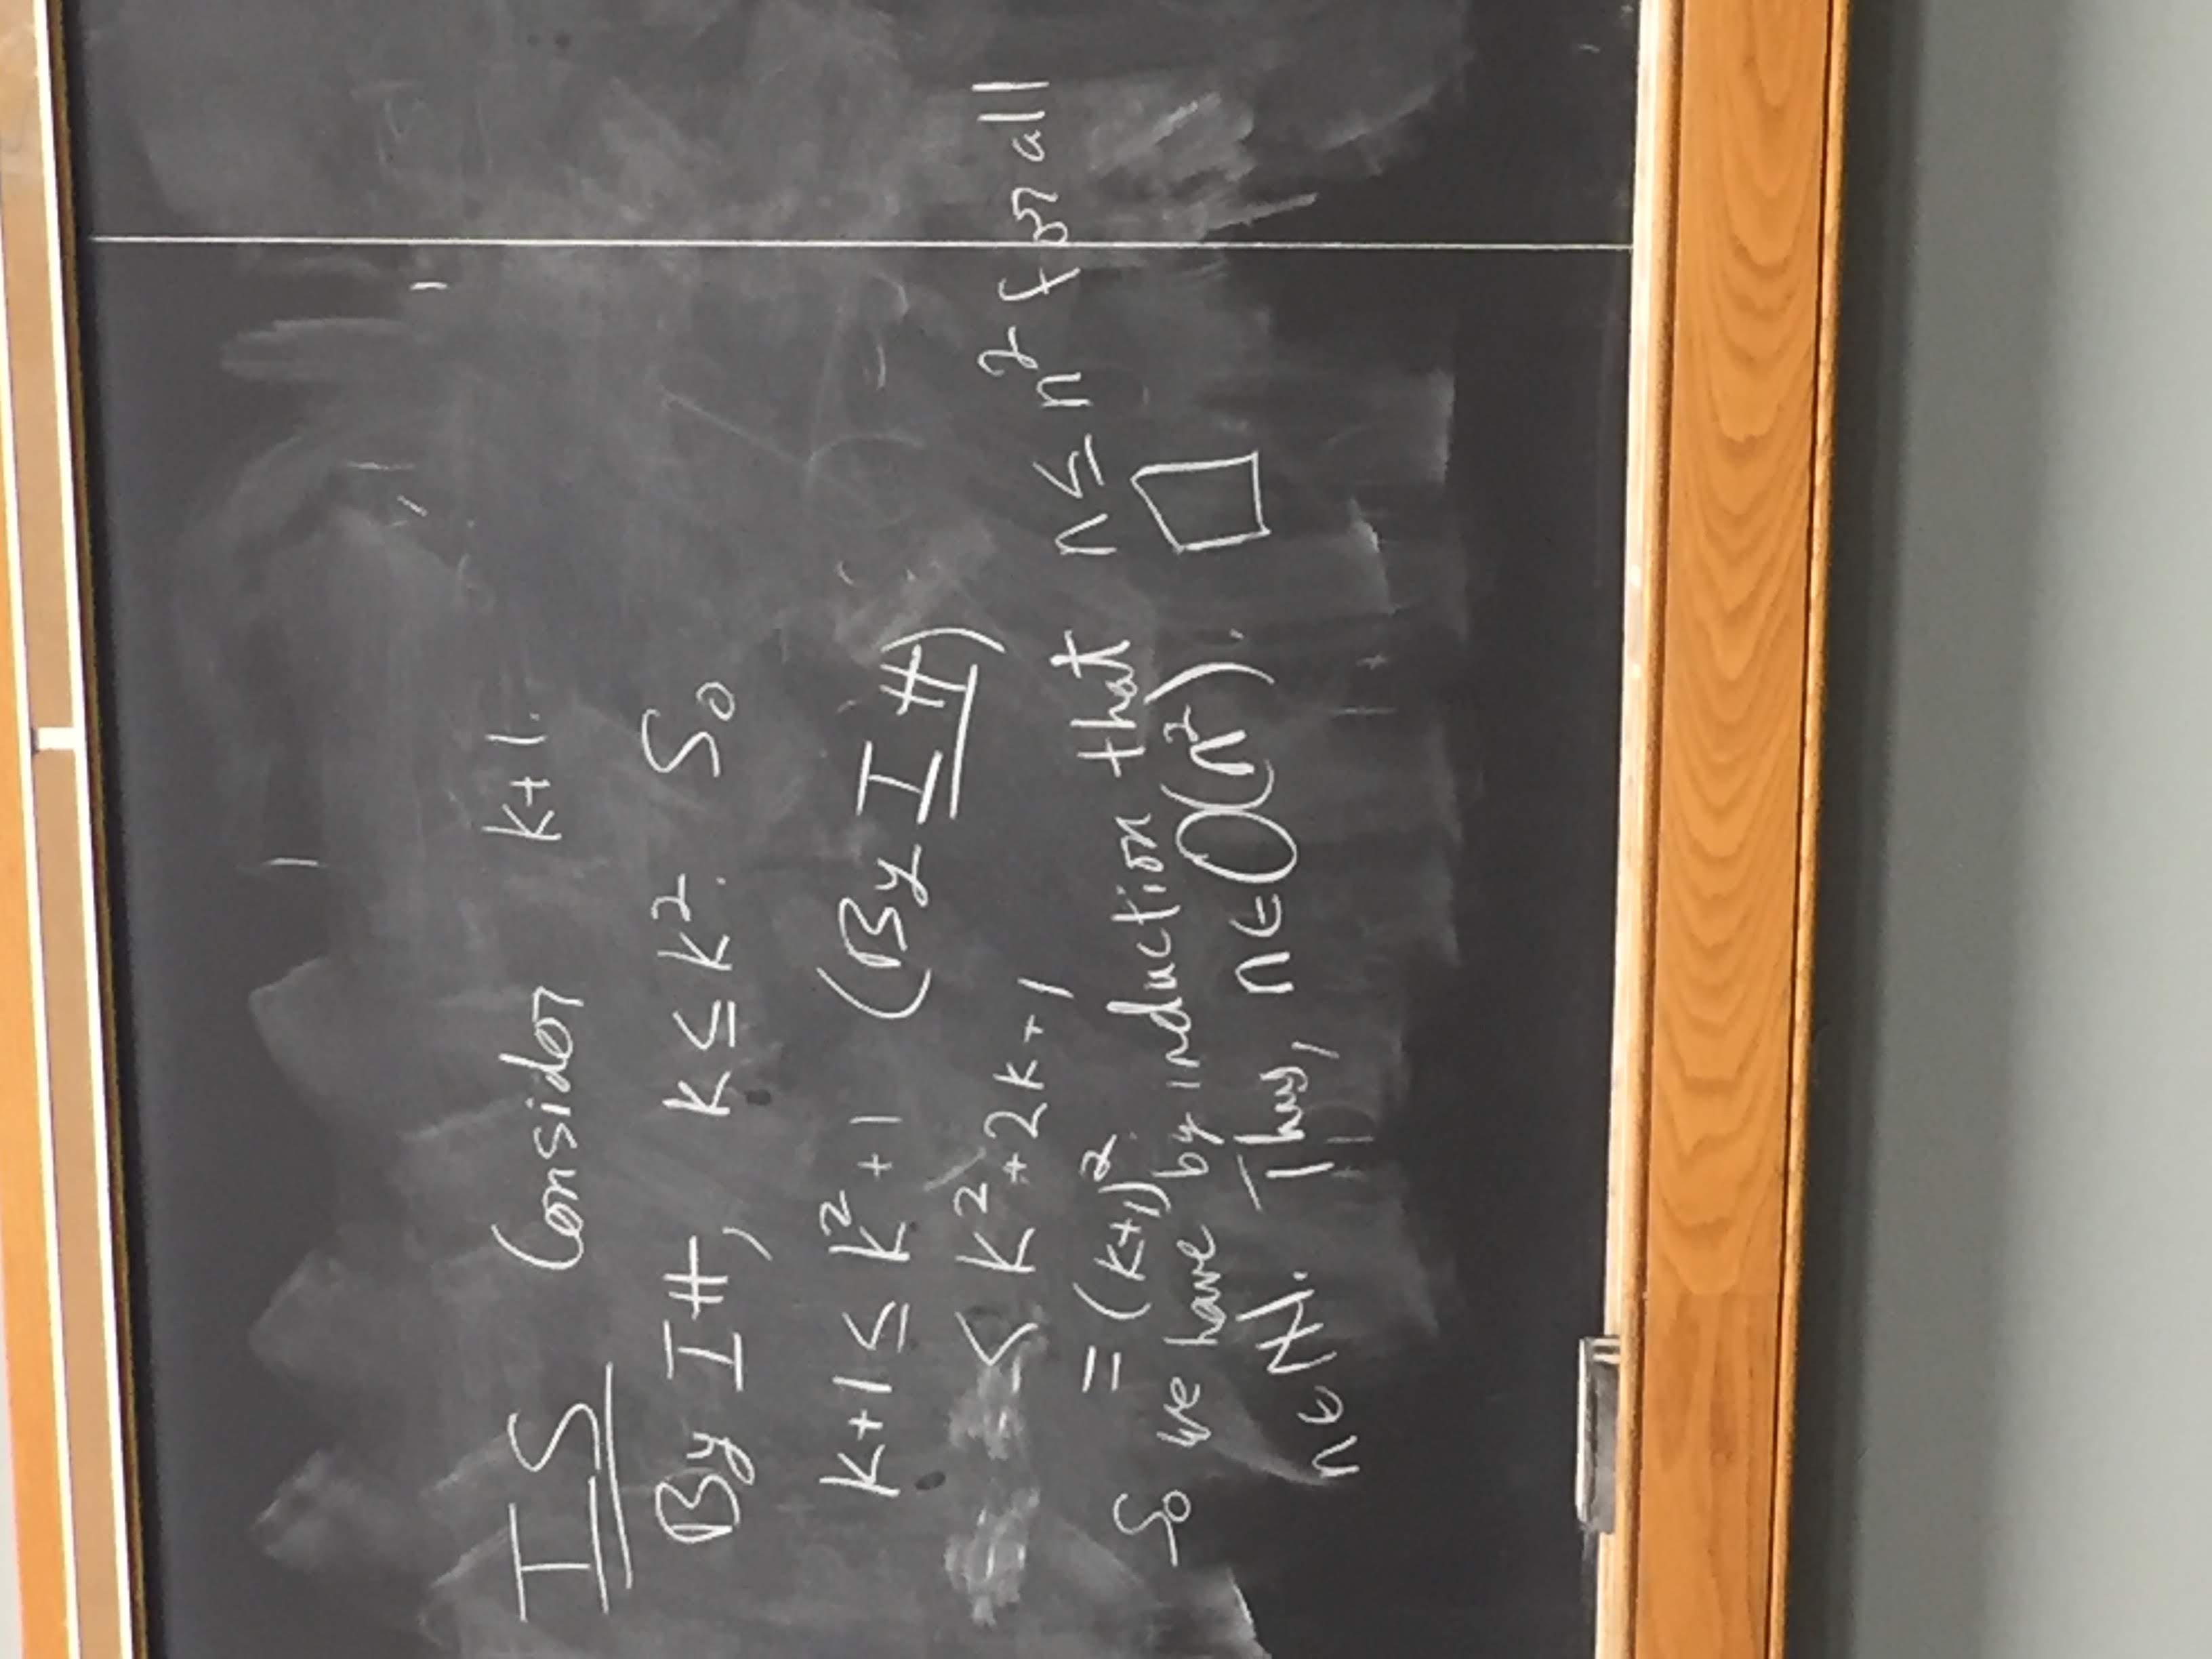 IS Consider k+1.
By IH, k ≤ k². So
k+1 ≤ k²+1 (By IH)
< k²+2k+1
= (k+1)².
So we have by induction that n ≤ n² for all
n ∈ ℕ. Thus, n ∈ O(n²). □